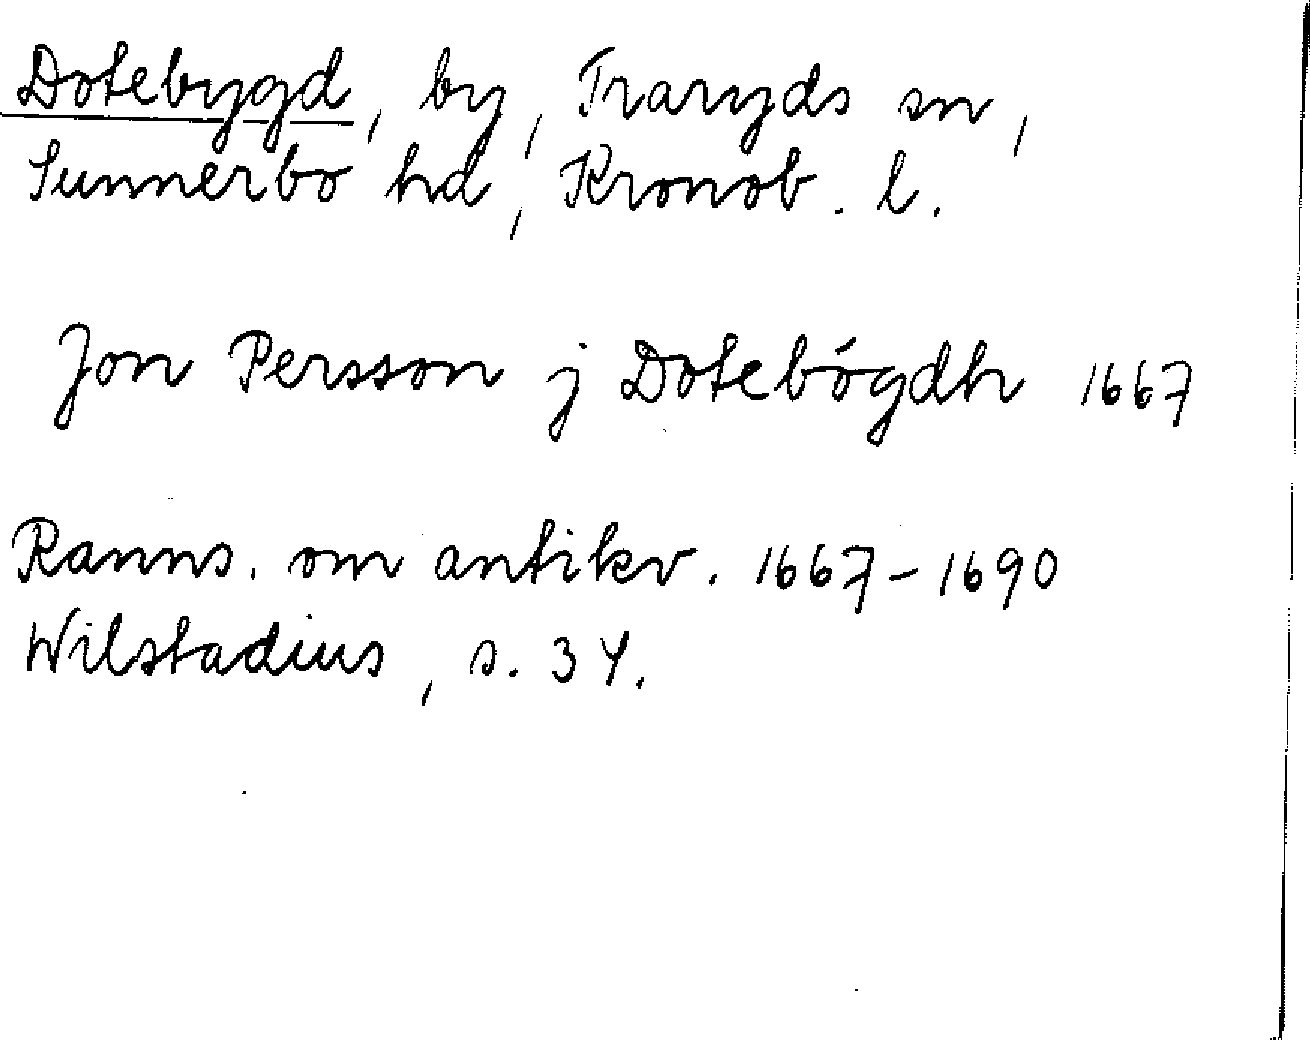 Dotebygd, by, Traryds sn,
Sunnerbo hd, Kronob. l.
Jon Persson j Dotebógdh 1667
Ranns. om antikv. 1667-1690
Wilstadius, s. 34.